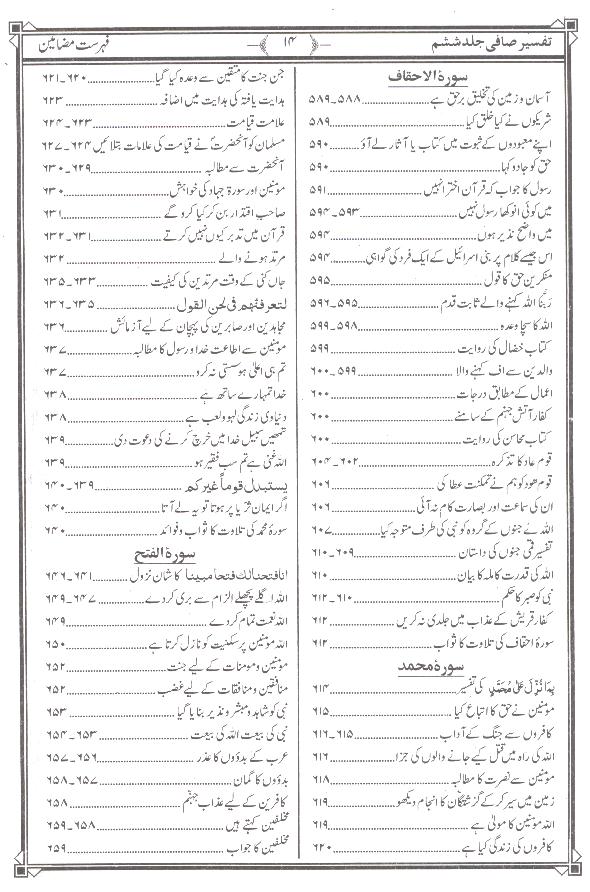 تفسیر صافی جلد ششم
۱۴
فہرست مضامین
سورۃ الاحقاف
آسمان و زمین کی تخلیق برحق ہے ۵۸۸۔۵۸۹
شریکوں نے کیا خلق کیا ۵۸۹
اپنے معبودوں کے ثبوت میں کتاب یا آثار لے آؤ ۵۹۰
حق کو جادو کہا ۵۹۰
رسول کا جواب کہ قرآن اختر انہیں ۵۹۱
میں کوئی انوکھا رسول نہیں ۵۹۳۔۵۹۴
میں واضح نذیر ہوں ۵۹۴
اس جیسے کلام پر بنی اسرائیل کے ایک فرد کی گواہی ۵۹۴
منکرین حق کا قول ۵۹۵
ربنا اللہ کہنے والے ثابت قدم ۵۹۵۔۵۹۶
اللہ کا سچا وعدہ ۵۹۸۔۵۹۹
کتاب خصال کی روایت ۵۹۹
والدین سے اف کہنے والا ۵۹۹۔۶۰۰
اعمال کے مطابق درجات ۶۰۰
کفار آتش جہنم کے سامنے ۶۰۰
کتاب محاسن کی روایت ۶۰۰
قوم عاد کا تذکرہ ۶۰۲۔۶۰۴
قوم ھود کو ہم نے تمکنت عطا کی ۶۰۶
ان کی سماعت اور بصارت کام نہ آئی ۶۰۶
اللہ نے جنوں کے گروہ کو نبی کی طرف متوجہ کیا ۶۰۷
تفسیر قمی جنوں کی داستان ۶۰۹۔۶۱۰
اللہ کی قدرت کاملہ کا بیان ۶۱۰
نبی کو صبر کا حکم ۶۱۰۔۶۱۲
کفار قریش کے عذاب میں جلدی نہ کریں ۶۱۲
سورۃ احقاف کی تلاوت کا ثواب ۶۱۲
سورۃ محمد
بِمَا نُزِّلَ عَلٰی مُحَمَّدٍ کی تفسیر ۶۱۴
مؤمنین نے حق کا اتباع کیا ۶۱۵
کافروں سے جنگ کے آداب ۶۱۵۔۶۱۶
اللہ کی راہ میں قتل کیے جانے والوں کی جزا ۶۱۶
مؤمنین سے نصرت کا مطالبہ ۶۱۸
زمین میں سیر کر کے گزشتگان کا انجام دیکھو ۶۱۹
اللہ مؤمنین کا مولیٰ ہے ۶۱۹
کافروں کی زندگی کیا ہے ۶۲۰
جن جنت کا متقین سے وعدہ کیا گیا ۶۲۰۔۶۲۱
ہدایت یافتہ کی ہدایت میں اضافہ ۶۲۳
علامت قیامت ۶۲۳۔۶۲۴
مسلمان کو آنحضرتؐ نے قیامت کی علامات بتلائیں ۶۲۴۔۶۲۷
آنحضرت سے مطالبہ ۶۲۹۔۶۳۰
مؤمنین اور سورۃ جہاد کی خواہش ۶۳۰
صاحب اقتدار بن کر کیا کرو گے ۶۳۱
قرآن میں تدبر کیوں نہیں کرتے ۶۳۱۔۶۳۲
مرتد ہونے والے ۶۳۲
جاں کنی کے وقت مرتدین کی کیفیت ۶۳۳۔۶۳۵
لتعرفنّهم فی لحن القول ۶۳۵۔۶۳۶
مجاہدین اور صابرین کی پہچان کے لیے آزمائش ۶۳۶
مؤمنین سے اطاعت خدا و رسول کا مطالبہ ۶۳۷
تم ہی اعلیٰ ہو سستی نہ کرو ۶۳۷
خدا تمہارے ساتھ ہے ۶۳۸
دنیاوی زندگی لہو و لعب ہے ۶۳۸
تمھیں سبیل خدا میں خرچ کرنے کی دعوت دی ۶۳۹
اللہ غنی ہے تم سب فقیر ہو ۶۳۹
یستبدل قوماً غیرکم ۶۳۹۔۶۴۰
اگر ایمان ثریا پر ہوتا تو یہ لے آتا ۶۴۰
سورۃ محمد کی تلاوت کا ثواب و فوائد ۶۴۰
سورۃ الفتح
انا فتحنا لک فتحا مبینا کا شان نزول ۶۴۱۔۶۴۶
اللہ اگلے پچھلے الزام سے بری کر دے ۶۴۷۔۶۴۹
اللہ نعمت تمام کر دے ۶۴۹
اللہ مؤمنین پر سکینت کو نازل کرتا ہے ۶۵۰
مؤمنین و مومنات کے لیے جنت ۶۵۲
منافقین و منافقات کے لیے غضب ۶۵۲
نبی کو شاہد و مبشر و نذیر بنایا گیا ۶۵۳
نبی کی بیعت اللہ کی بیعت ۶۵۳۔۶۵۴
عرب کے بدؤوں کا عذر ۶۵۶۔۶۵۷
بدؤوں کا گمان ۶۵۷۔۶۵۸
کافرین کے لیے عذاب جہنم ۶۵۸
مخلفین کہتے ہیں ۶۵۸۔۶۵۹
مخلفین کا جواب ۶۵۹